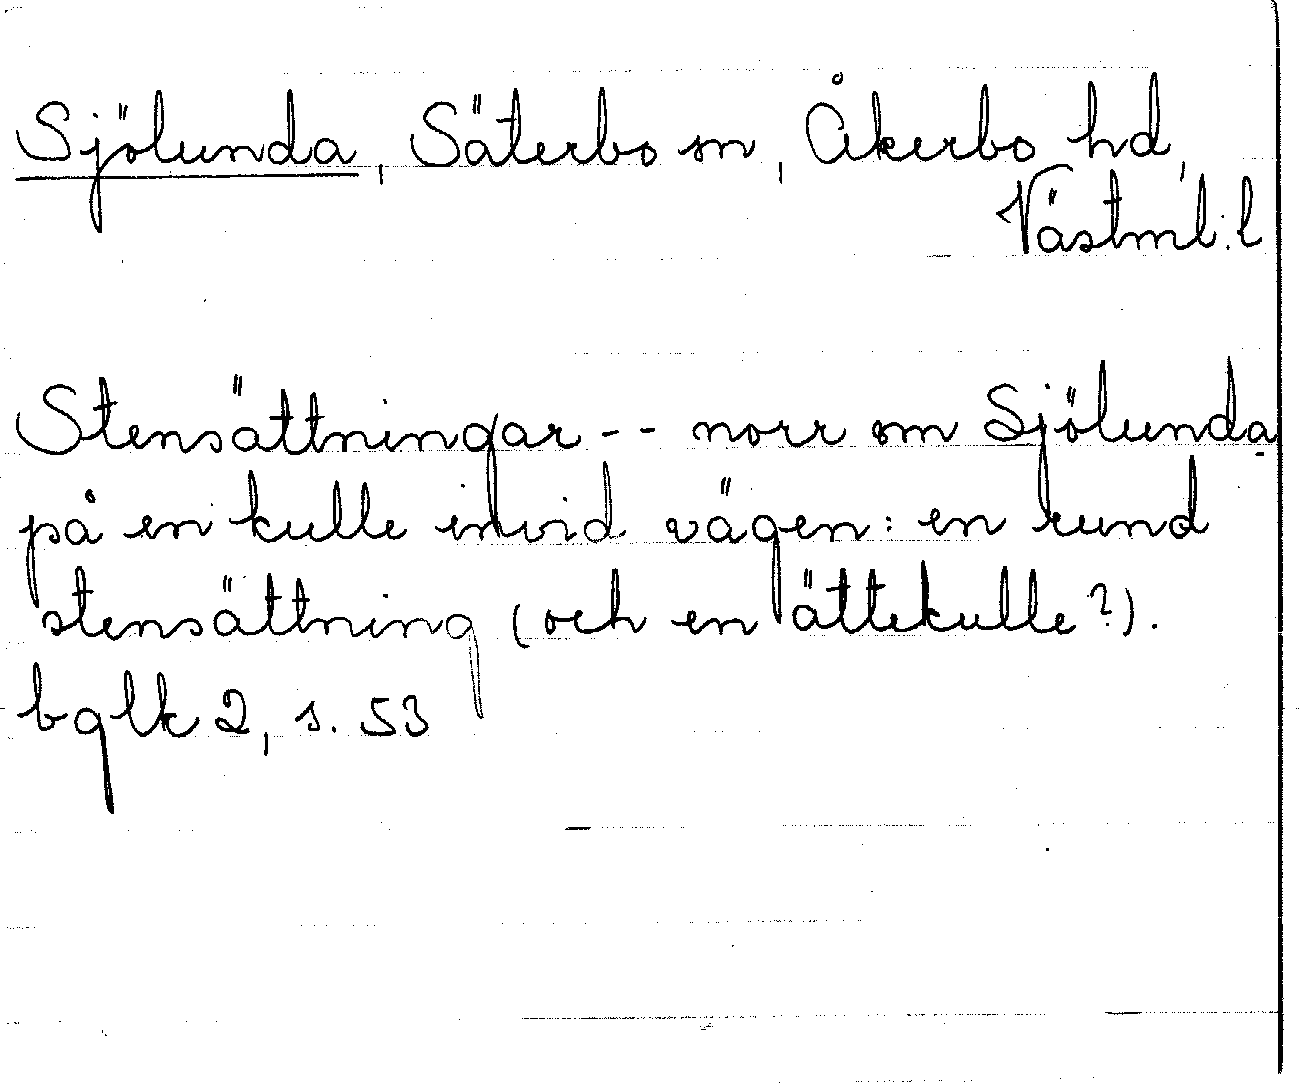 Sjölunda, Säterbo sn, Åkerbo hd,
Västml. l
Stensättningar -- norr om Sjölunda
på en kulle invid vägen: en rund
stensättning (och en ättekulle?).
bglk 2, s. 53